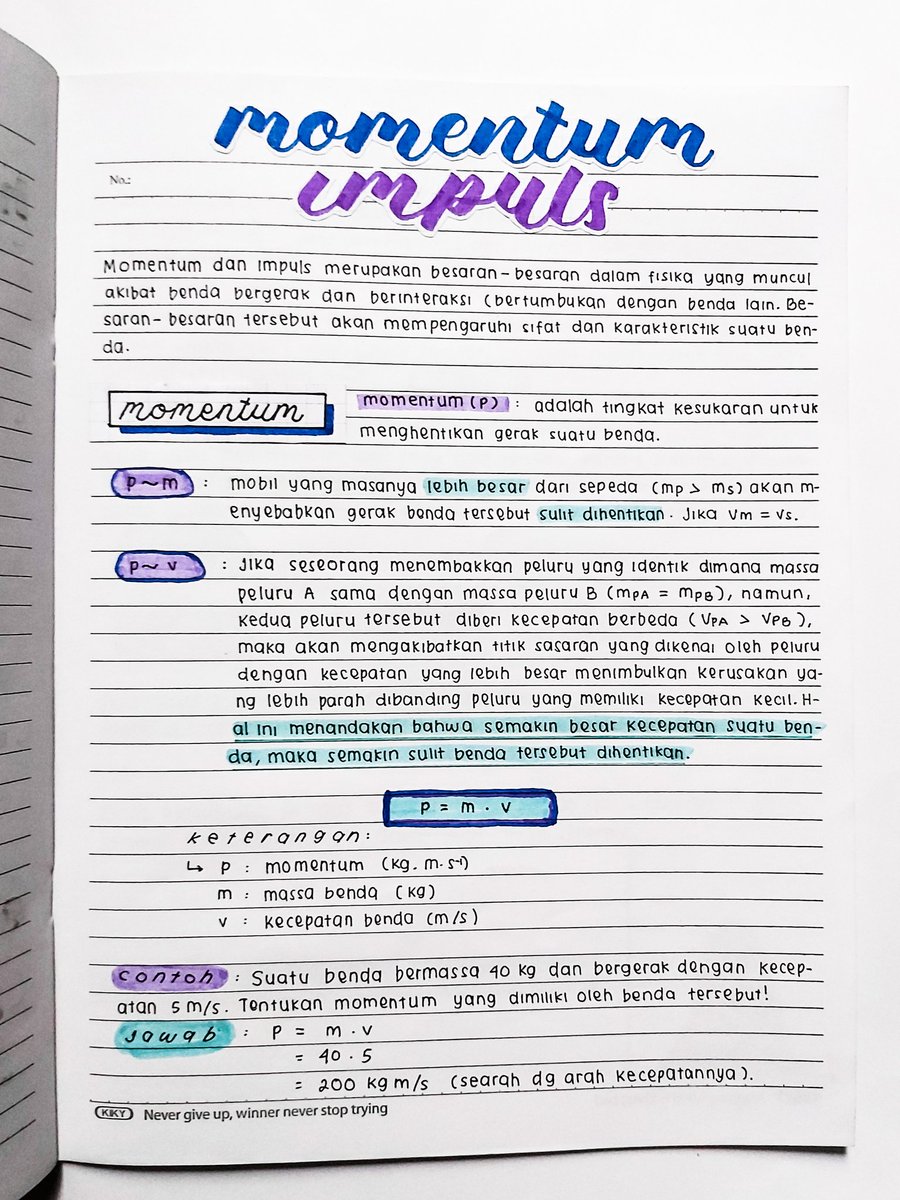 momentum
impuls
No.:
Momentum dan impuls merupakan besaran-besaran dalam fisika yang muncul
akibat benda bergerak dan berinteraksi (bertumbukan dengan benda lain. Be-
saran-besaran tersebut akan mempengaruhi sifat dan karakteristik suatu ben-
da.
momentum
momentum (P) : adalah tingkat kesukaran untuk
menghentikan gerak suatu benda.
p~m : mobil yang masanya lebih besar dari sepeda (mp > ms) akan m-
enyebabkan gerak benda tersebut sulit dihentikan. Jika Vm = Vs.
p~ v : Jika seseorang menembakkan peluru yang identik dimana massa
peluru A sama dengan massa peluru B (mPA = mPB), namun,
kedua peluru tersebut diberi kecepatan berbeda (VPA > VPB),
maka akan mengakibatkan titik sasaran yang dikenai oleh peluru
dengan kecepatan yang lebih besar menimbulkan kerusakan ya-
ng lebih parah dibanding peluru yang memiliki kecepatan kecil. H-
al ini menandakan bahwa semakin besar kecepatan suatu ben-
da, maka semakin sulit benda tersebut dihentikan.
p = m . v
keterangan:
↳ p : momentum (kg. m. s⁻¹)
m : massa benda (kg)
v : kecepatan benda (m/s)
contoh : Suatu benda bermassa 40 kg dan bergerak dengan kecep-
atan 5 m/s. Tentukan momentum yang dimiliki oleh benda tersebut!
jawab : P = m . v
= 40 . 5
= 200 kg m/s (searah dg arah kecepatannya).
KIKY Never give up, winner never stop trying